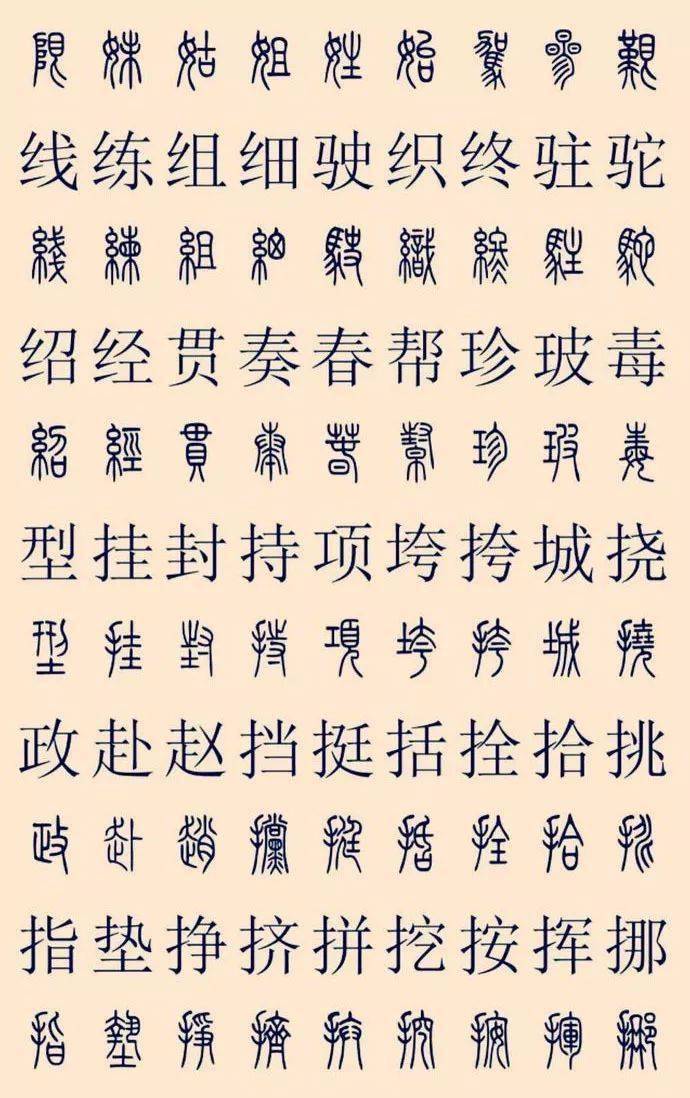 限妹姑姐姓始駕叄艱
线练组细驶织终驻驼
綫練組細駛織終駐駝
绍经贯奏春帮珍玻毒
紹經貫奏春幫珍玻毒
型挂封持项垮挎城挠
型挂封持項垮挎城撓
政赴赵挡挺括拴拾挑
政赴趙攩挺括拴拾挑
指垫挣挤拼挖按挥挪
指墊掙擠拼挖按揮挪